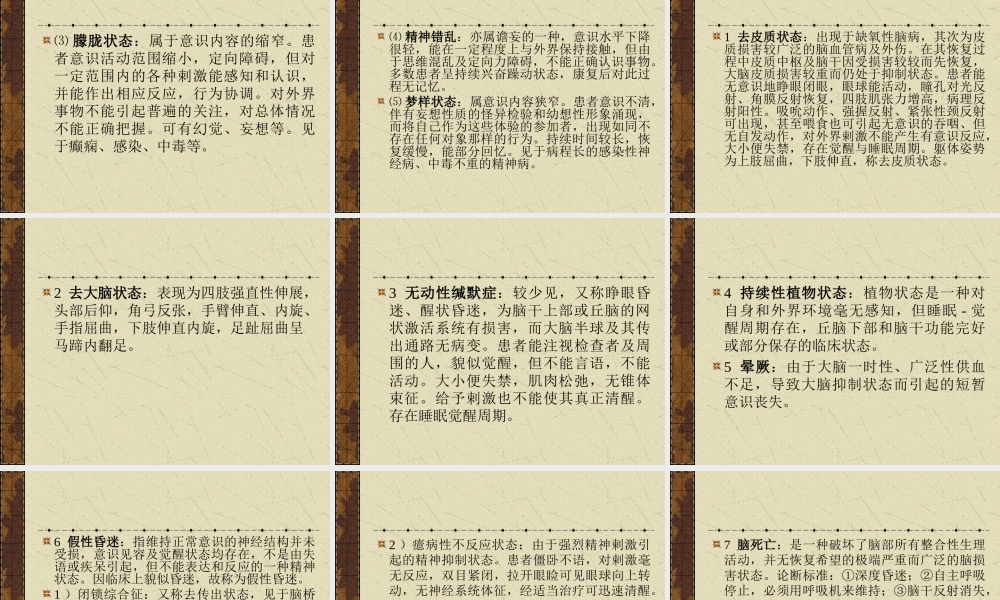 ⑶ 朦胧状态：属于意识内容的缩窄。患
者意识活动范围缩小，定向障碍，但对
一定范围内的各种刺激能感知和认识，
并能作出相应反应，行为协调。对外界
事物不能引起普遍的关注，对总体情况
不能正确把握。可有幻觉、妄想等。见
于癫痫、感染、中毒等。
⑷ 精神错乱：亦属谵妄的一种，意识水平下降
很轻，能在一定程度上与外界保持接触，但由
于思维混乱及定向力障碍，不能正确认识事物。
多数患者呈持续兴奋躁动状态，康复后对此过
程无记忆。
⑸ 梦样状态：属意识内容狭窄。患者意识不清，
伴有妄想性质的怪异检验和幻想性形象涌现，
而将自己作为这些体验的参加者，出现如同不
存在任何对象那样的行为。持续时间较长，恢
复缓慢，能部分回忆。见于病程长的感染性神
经病、中毒不重的精神病。
1 去皮质状态：出现于缺氧性脑病，其次为皮
质损害较广泛的脑血管病及外伤。在其恢复过
程中皮质中枢及脑干因受损害较较而先恢复，
大脑皮质损害较重而仍处于抑制状态。患者能
无意识地睁眼闭眼，眼球能活动，瞳孔对光反
射、角膜反射恢复，四肢肌张力增高，病理反
射阳性。吸吮动作、强握反射、紧张性颈反射
可出现，甚至喂食也可引起无意识的吞咽、但
无自发动作，对外界刺激不能产生有意识反应，
大小便失禁，存在觉醒与睡眠周期。躯体姿势
为上肢屈曲，下肢伸直，称去皮质状态。
2 去大脑状态：表现为四肢强直性伸展，
头部后仰，角弓反张，手臂伸直、内旋，
手指屈曲，下肢伸直内旋，足趾屈曲呈
马蹄内翻足。
3 无动性缄默症：较少见，又称睁眼昏
迷、醒状昏迷，为脑干上部或丘脑的网
状激活系统有损害，而大脑半球及其传
出通路无病变。患者能注视检查者及周
围的人，貌似觉醒，但不能言语，不能
活动。大小便失禁，肌肉松弛，无锥体
束征。给予刺激也不能使其真正清醒。
存在睡眠觉醒周期。
4 持续性植物状态：植物状态是一种对
自身和外界环境毫无感知，但睡眠-觉
醒周期存在，丘脑下部和脑干功能完好
或部分保存的临床状态。
5 晕厥：由于大脑一时性、广泛性供血
不足，导致大脑抑制状态而引起的短暂
意识丧失。
6 假性昏迷：指维持正常意识的神经结构并未
受损，意识见容及觉醒状态均存在，不是由失
语或疾呆引起，但不能表达和反应的一种精神
状态。因临床上貌似昏迷，故称为假性昏迷。
1）闭锁综合征：又称去传出状态，见于脑桥
2）癔病性不反应状态：由于强烈精神刺激引
起的精神抑制状态。患者僵卧不语，对刺激毫
无反应，双目紧闭，拉开眼睑可见眼球向上转
动，无神经系统体征，经适当治疗可迅速清醒。
7 脑死亡：是一种破坏了脑部所有整合性生理
活动，并无恢复希望的极端严重而广泛的脑损
害状态。论断标准：①深度昏迷；②自主呼吸
停止，必须用呼吸机来维持；③脑干反射消失，